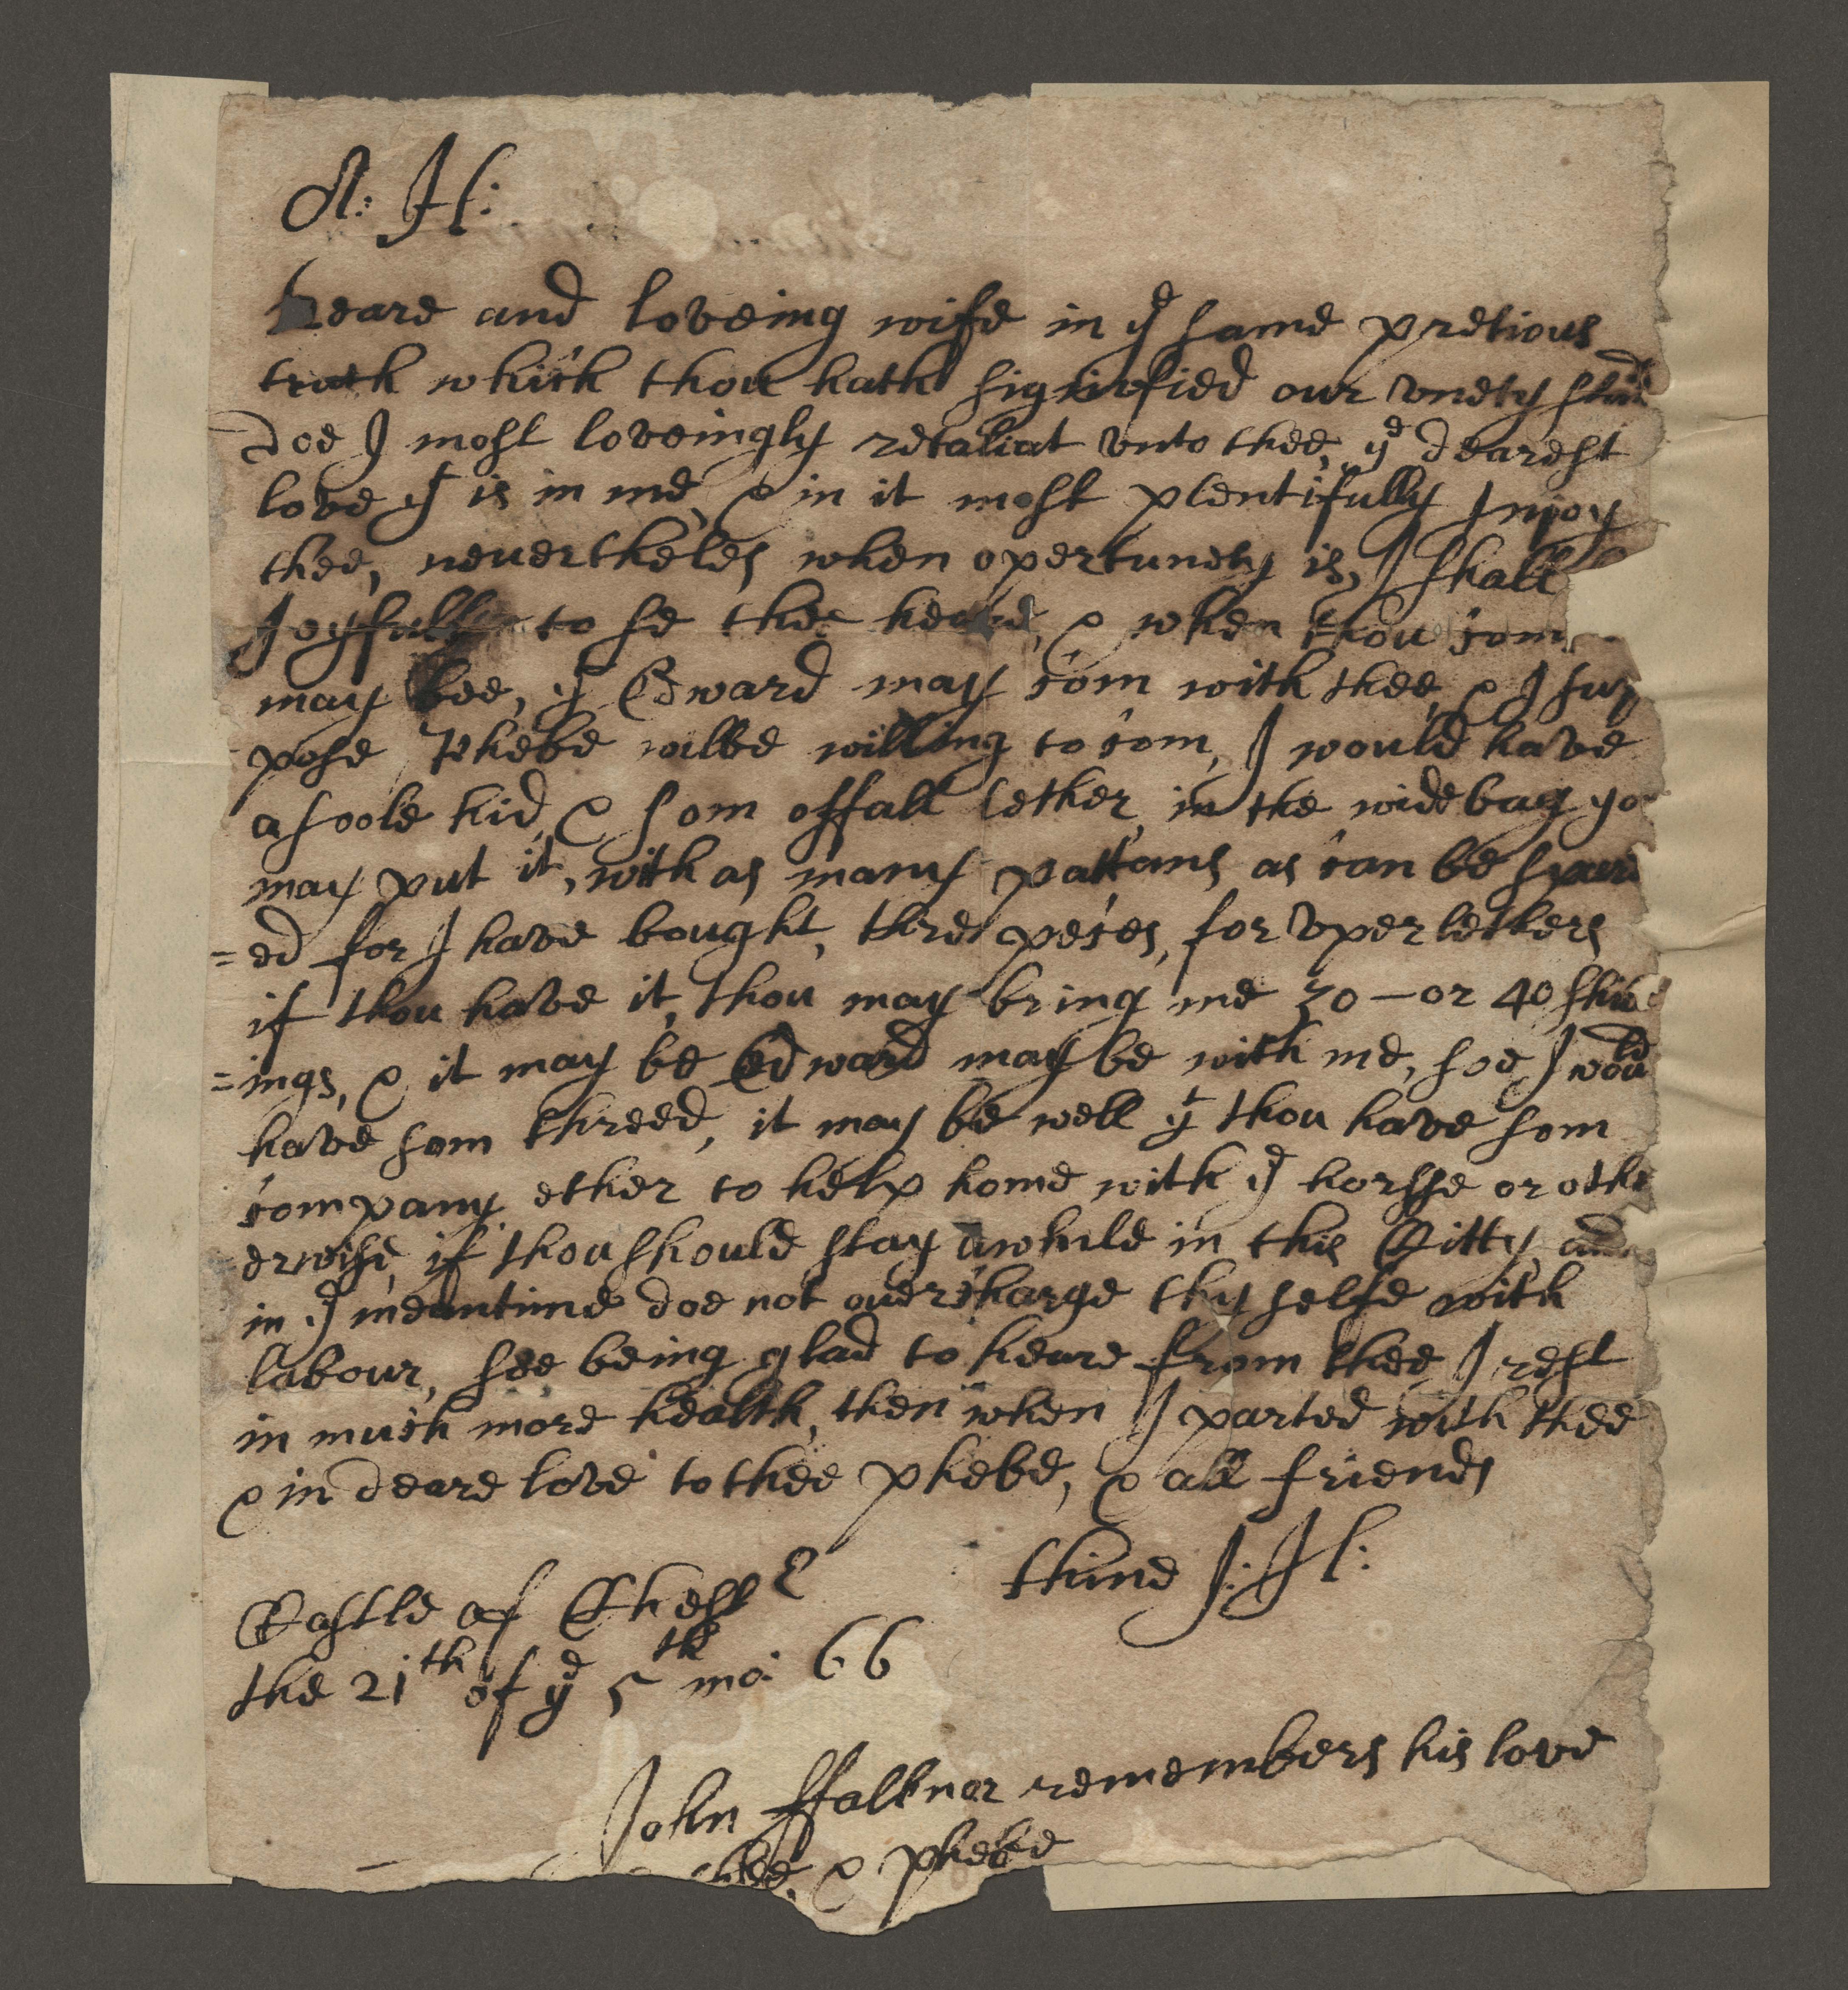 A: H:
Deare and loveing wife in ye same pretious
truth which thou hath signified our vnety stands
doe I most loveingly retaliat vnto thee, ye dearest
love yt is in me, & in it most plentifully Injoy
thee, neuertheles when opertunety is, I shall
Joyfull to se thee heare, & when thou com
may bee, yt Edward may com with thee, & I sup
pose Phebe wilbe willing to com, I would have
a soole hid, & som offall lether, in the wide bag yo
may put it, with as many pattons as can be spar
=ed for I have bought, thre peces, for vper lethers
if thou have it, thou may bring me 30 - or 40 shil
=ings, & it may be Edward may be with me, soe I would
have som threed, it may be well yt thou have som
company, ether to help home with ye horsse or oth
erwise, if thou should stay awhile in this Citty, and
in ye meantime doe not ouercharge thy selfe with
labour, soe being glad to heare from thee, I rest
in much more health, then when I parted with thee
& in deare love to thee phebe, & all friends
thine J: H:
Castle of Chestr
the 21th of ye 5th mo: 66
John ffalkner remembers his love
thee, & phebe